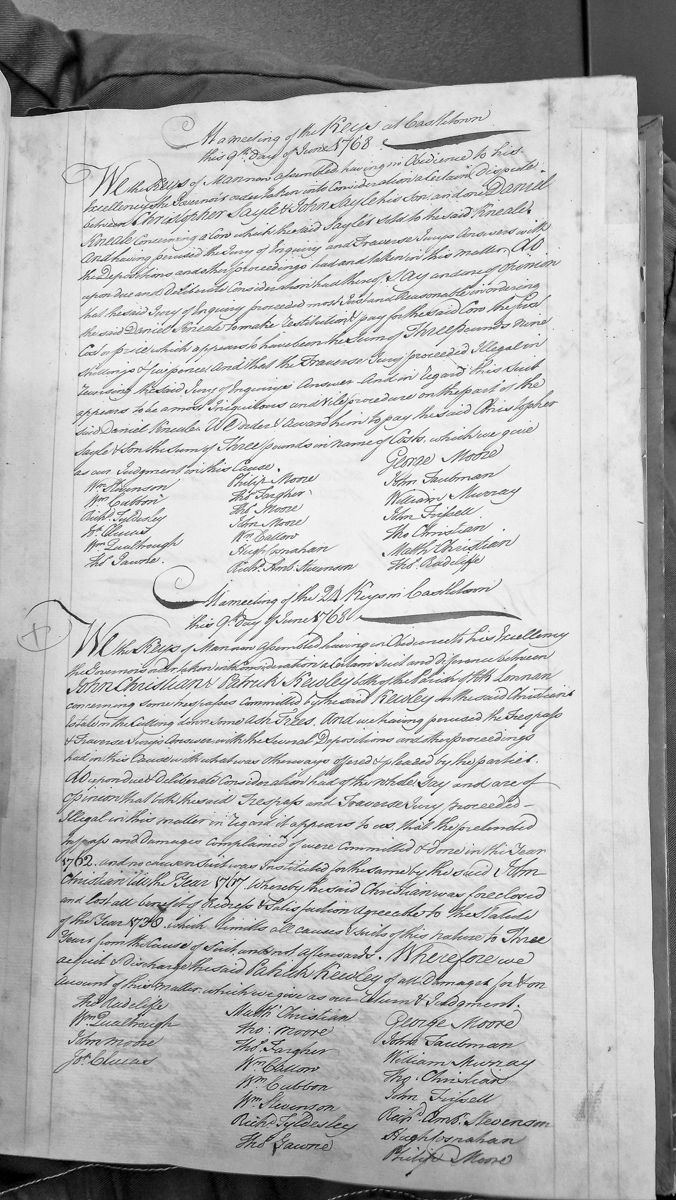 At a meeting of the Keys at Castletown
this 9th. Day of June 1768
We the Keys of Mannan assembled having in Obedience to his
Excellency the Governor's order taken into Consideration a Certain Dispute
between Christopher Sayle & John Sayle his Son and one Daniel
Kneale Concerning a Cow which the said Sayles sold to the said Kneale
And having perused the Jury of Enquiry and Traverse Jurys Answers with
the Depositions and other proceedings had and taken in this matter. Do
upon due and Deliberate Consideration had thereof, Say and are of Opinion
that the said Jury of Enquiry proceeded most Just and Reasonable in ordering
the said Daniel Kneale to make Restitution & pay for the said Cow the first
Cost or price which appears to have been the Sum of Three pounds Nine
Shillings & five pence And that the Traverse Jury proceeded Illegal in
Reversing the said Jury of Enquirys Answer And in regard this Suit
appears to be a most Iniquitous and Vile procedure on the part of the
said Daniel Kneale. We order & award him to pay the said Christopher
Sayle & Son the Sum of Three pounds in name of Costs, which we give
as our Judgment in this Cause.
George Moore
Wm. Stevenson Philip Moore John Taubman
Wm. Cubbon Thos. Fargher William Murray
Richd. Tyldesley Thos. Moore John Frissell
Jos. Clucas John Moore Tho. Christian
Wm. Qualtrough Wm. Callow Matth Christian
Thos. Gawne. Hugh Cosnahan Thos. Radcliffe
Richd. Ambs. Stevenson
At a meeting of the 24 Keys in Castletown
this 9th. Day of June 1768
We the Keys of Mannan Assembled having in Obedience to his Excellency
the Governors order taken into Consideration a Certain Suit and Difference between
John Christian & Patrick Kewley both of the Parish of Kk Lonnan
concerning some trespasses Committed by the said Kewley on the said Christians
Estate in the Cutting down some Ash Trees. And we having perused the Trespass
& Traverse Jurys Answer with the several Depositions and other proceedings
had in this Cause with what was otherways offered & pleaded by the parties.
Do upon due & Deliberate Consideration had of the whole Say and are of
opinion that both the said Trespass and Traverse Jury proceeded
Illegal in this matter in regard it appears to us, that the pretended
trespass and Damages Complained of were Committed & done in the Year
1762. and no cause or Suit was Instituted for the same by the said John
Christian till the Year 1767. Whereby the said Christian was foreclosed
and lost all benefit of Redress & Satisfaction agreeable to the Statute
of the Year 1736 which limitts all causes & suits of this nature to Three
Years from the Cause of Suit and not afterwards. Wherefore we
acquit & Discharge the said Patrick Kewley of all Damages for & on
account of this matter, which we give as our Return & Judgment.
Thos Radcliffe Matth Christian George Moore
Wm. Qualtrough Tho: Moore John Taubman
John Moore Thos. Fargher William Murray
Jos. Clucas Wm. Callow Tho. Christian
Wm. Cubbon John Frissell
Wm. Stevenson Richd. Ambs. Stevenson
Richd. Tyldesley Hugh Cosnahan
Thos Gawne Philip Moore